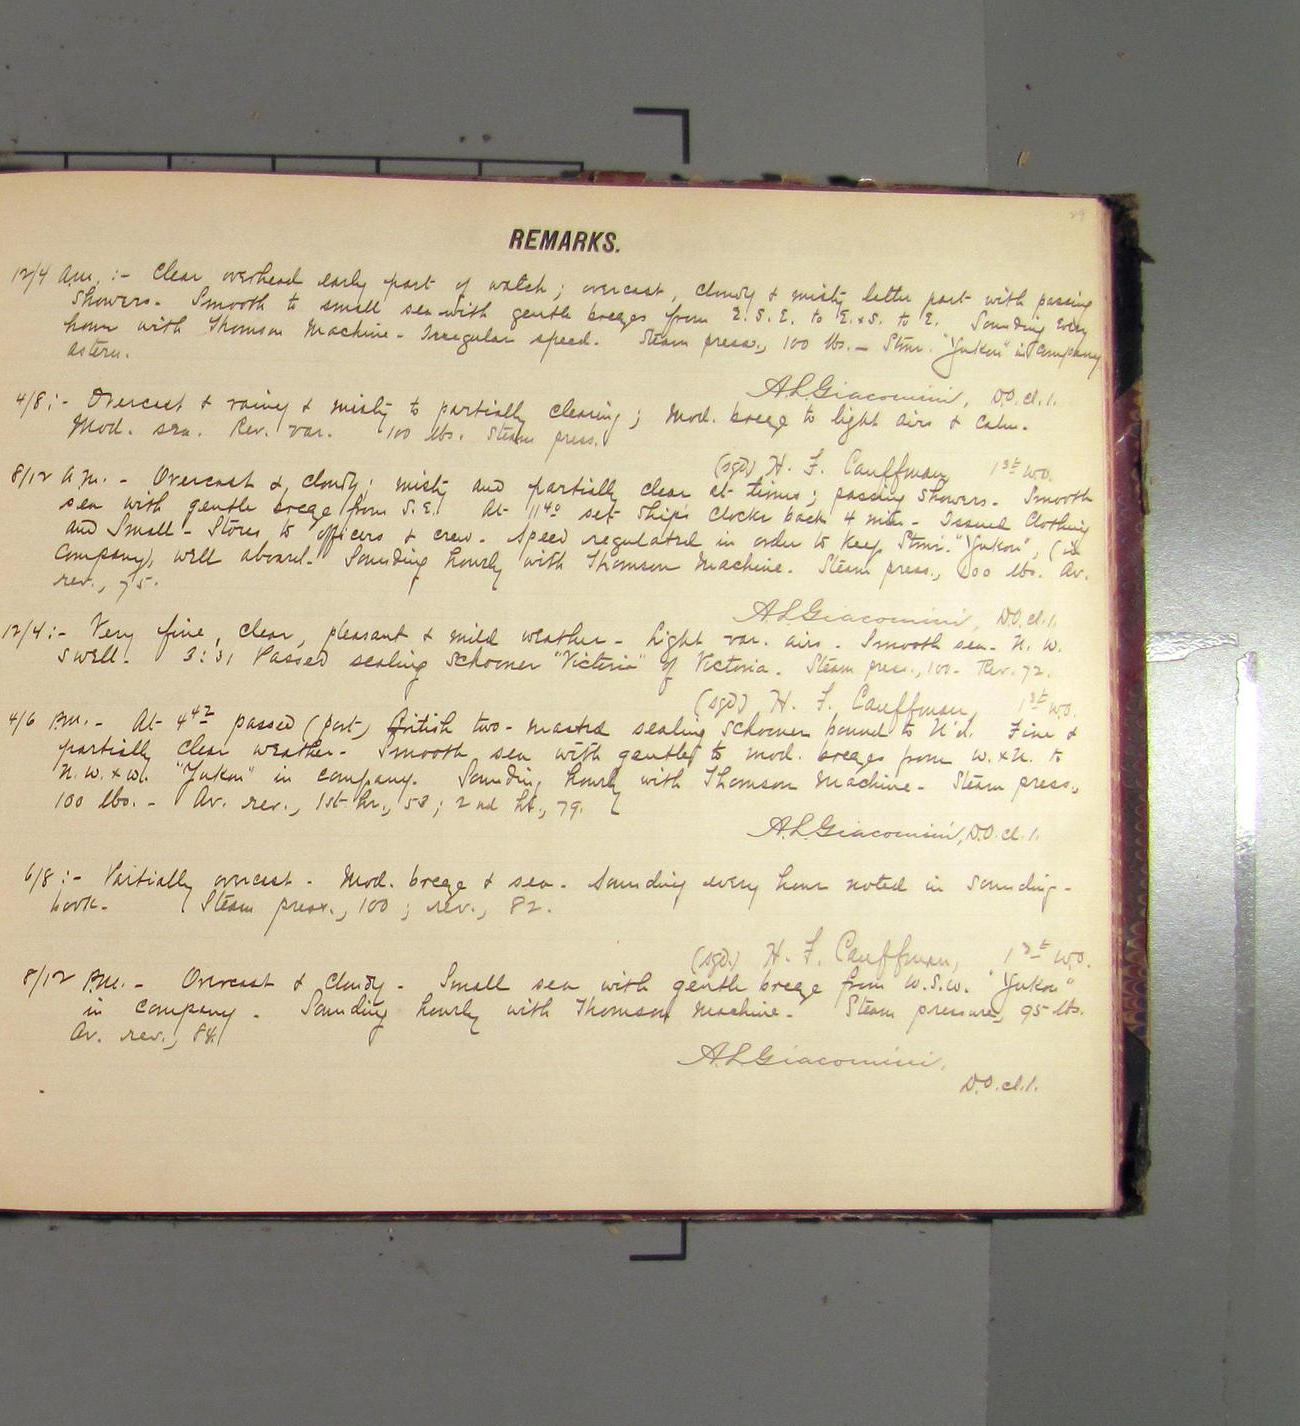 29
REMARKS.
12/4 am. :- Clear overhead early part of watch; overcast, cloudy & misty latter part with passing
showers - Smooth to small sea with gentle breeze from E.S.E. to E.xS. to E. Sounding every
hour with Thomson Machine - Irregular speed. Steam press., 100 lbs. - Stmr. "Yukon" in Company
astern.
A L Giacomini, D.O. cl. 1.
4/8 :- Overcast & rainy & misty to partially clearing; Mod. breeze to light airs & calm.
Mod. sea. Rev. var. 100 lbs. Steam press.
(sgd) H. F. Cauffman, 1st W.O.
8/12 A.M. - Overcast & cloudy; misty and partially clear at times; passing showers - Smooth
sea with gentle breeze from S.E. At 11 40 set ship's clocks back 4 min. - Issued Clothing
and Small-Stores to officers & crew. Speed regulated in order to keep Stmr. "Yukon", (in
company), well aboard. Sounding hourly with Thomson Machine. Steam press., 100 lbs. Av.
rev., 75.
A L Giacomini, D.O. cl. 1.
12/4 :- Very fine, clear, pleasant & mild weather - Light var. airs. Smooth sea - N. W.
swell. 3:31 Passed sealing schooner "Victoria" of Victoria. Steam press., 100 - Rev. 72.
(sgd) H. F. Cauffman, 1st W.O.
4/6 P.M. - At 4 42 passed (port) British two-masted sealing schooner bound to N'd. Fine &
partially clear weather - Smooth sea with gentle to mod. breeze from W.xN. to
N.W.xW. "Yukon" in company. Sounding hourly with Thomson Machine - Steam press.,
100 lbs. - Av. rev., 1st hr., 58; 2nd hr., 79.
A L Giacomini, D.O. cl. 1.
6/8 :- Partially overcast - Mod. breeze & sea - Sounding every hour noted in sounding-
book. Steam press., 100; rev., 82.
(sgd.) H. F. Cauffman, 1st W.O.
8/12 P.M. - Overcast & cloudy - Small sea with gentle breeze from W.S.W. "Yukon"
in company - Sounding hourly with Thomson Machine - Steam pressure, 95 lbs.
Av. rev., 84.
A L Giacomini,
D.O. cl. 1.